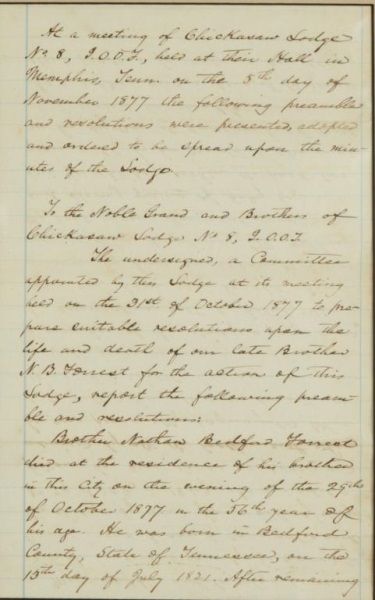 At a meeting of Chickasaw Lodge
No 8, I.O.O.F., held at their Hall in
Memphis, Tenn. on the 5th day of
November 1877 the following preamble
and resolutions were presented, adopted
and ordered to be spread upon the min-
utes of the Lodge.
To the Noble Grand and Brothers of
Chickasaw Lodge No 8, I.O.O.F.
The undersigned, a Committee
appointed by this Lodge at its meeting
held on the 31st of October 1877 to pre-
pare suitable resolutions upon the
life and death of our late Brother
N. B. Forrest for the action of this
Lodge, report the following pream-
ble and resolutions:
Brother Nathan Bedford Forrest
died at the residence of his brother
in this City on the evening of the 29th
of October 1877 in the 56th year of
his age. He was born in Bedford
County, State of Tennessee, on the
13th day of July 1821. After remaining